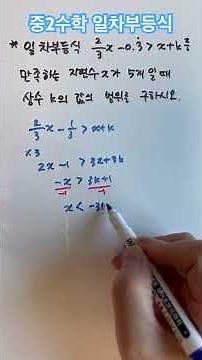 중2수학 일차부등식
* 일차부등식 2/3x-0.3̇ > x+k를
만족하는 자연수 x가 5개일 때
상수 k의 값의 범위를 구하시오.
2/3x - 1/3 > x+k
×3
2x -1 > 3x+3k
-x > 3k+1
-1 -1
x < -3k